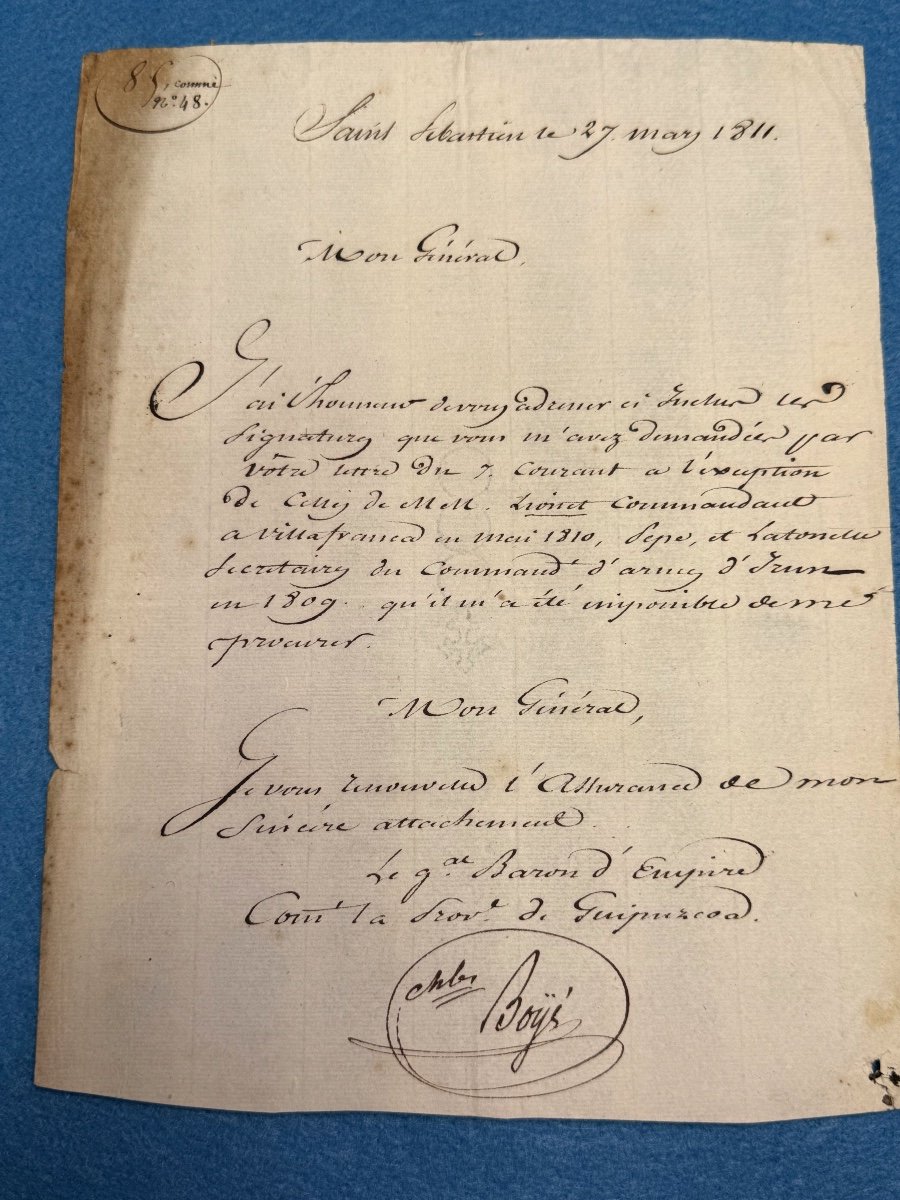 85, comme
No. 48.
Saint Sebastien le 27. mars 1811.
Mon Général,
J'ai l'honneur de vous adresser ci Inclus les
Signatures que vous m'avez demandées par
vôtre lettre du 7. courant a l'éxception
de Celles de MM. Lionet Commandant
a Villafranca en mai 1810, Pepe, et Latorrelle
Secretaires du Command.t d'armes d'Irun
en 1809. qu'il m'a été impossible de me
procurer.
Mon Général,
Je vous renouvelle l'Assurance de mon
Sincére attachement.
Le g.al Baron d'Empire
Com.t la Prov.e de Guipuzcoa.
Boÿé